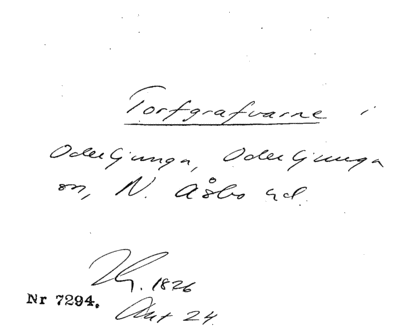 Torfgrafvarne i
Oderljunga, Oderljunga
sn, N. Åsbo hd.
Kg. 1826
Nr 7294.
Akt 24